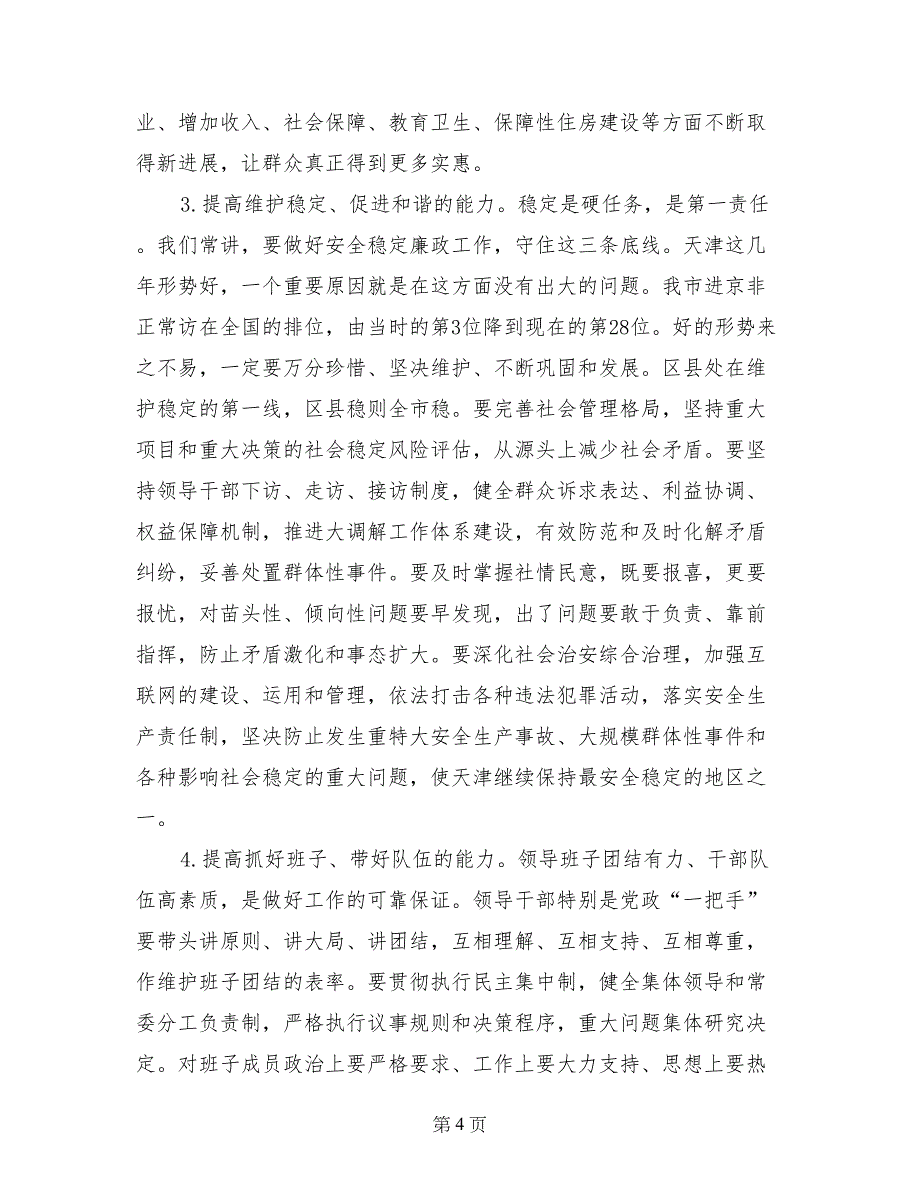 业、增加收入、社会保障、教育卫生、保障性住房建设等方面不断取
得新进展，让群众真正得到更多实惠。
3.提高维护稳定、促进和谐的能力。稳定是硬任务，是第一责任
。我们常讲，要做好安全稳定廉政工作，守住这三条底线。天津这几
年形势好，一个重要原因就是在这方面没有出大的问题。我市进京非
正常访在全国的排位，由当时的第3位降到现在的第28位。好的形势来
之不易，一定要万分珍惜、坚决维护、不断巩固和发展。区县处在维
护稳定的第一线，区县稳则全市稳。要完善社会管理格局，坚持重大
项目和重大决策的社会稳定风险评估，从源头上减少社会矛盾。要坚
持领导干部下访、走访、接访制度，健全群众诉求表达、利益协调、
权益保障机制，推进大调解工作体系建设，有效防范和及时化解矛盾
纠纷，妥善处置群体性事件。要及时掌握社情民意，既要报喜，更要
报忧，对苗头性、倾向性问题要早发现，出了问题要敢于负责、靠前
指挥，防止矛盾激化和事态扩大。要深化社会治安综合治理，加强互
联网的建设、运用和管理，依法打击各种违法犯罪活动，落实安全生
产责任制，坚决防止发生重特大安全生产事故、大规模群体性事件和
各种影响社会稳定的重大问题，使天津继续保持最安全稳定的地区之
一。
4.提高抓好班子、带好队伍的能力。领导班子团结有力、干部队
伍高素质，是做好工作的可靠保证。领导干部特别是党政“一把手”
要带头讲原则、讲大局、讲团结，互相理解、互相支持、互相尊重，
作维护班子团结的表率。要贯彻执行民主集中制，健全集体领导和常
委分工负责制，严格执行议事规则和决策程序，重大问题集体研究决
定。对班子成员政治上要严格要求、工作上要大力支持、思想上要热
第 4 页